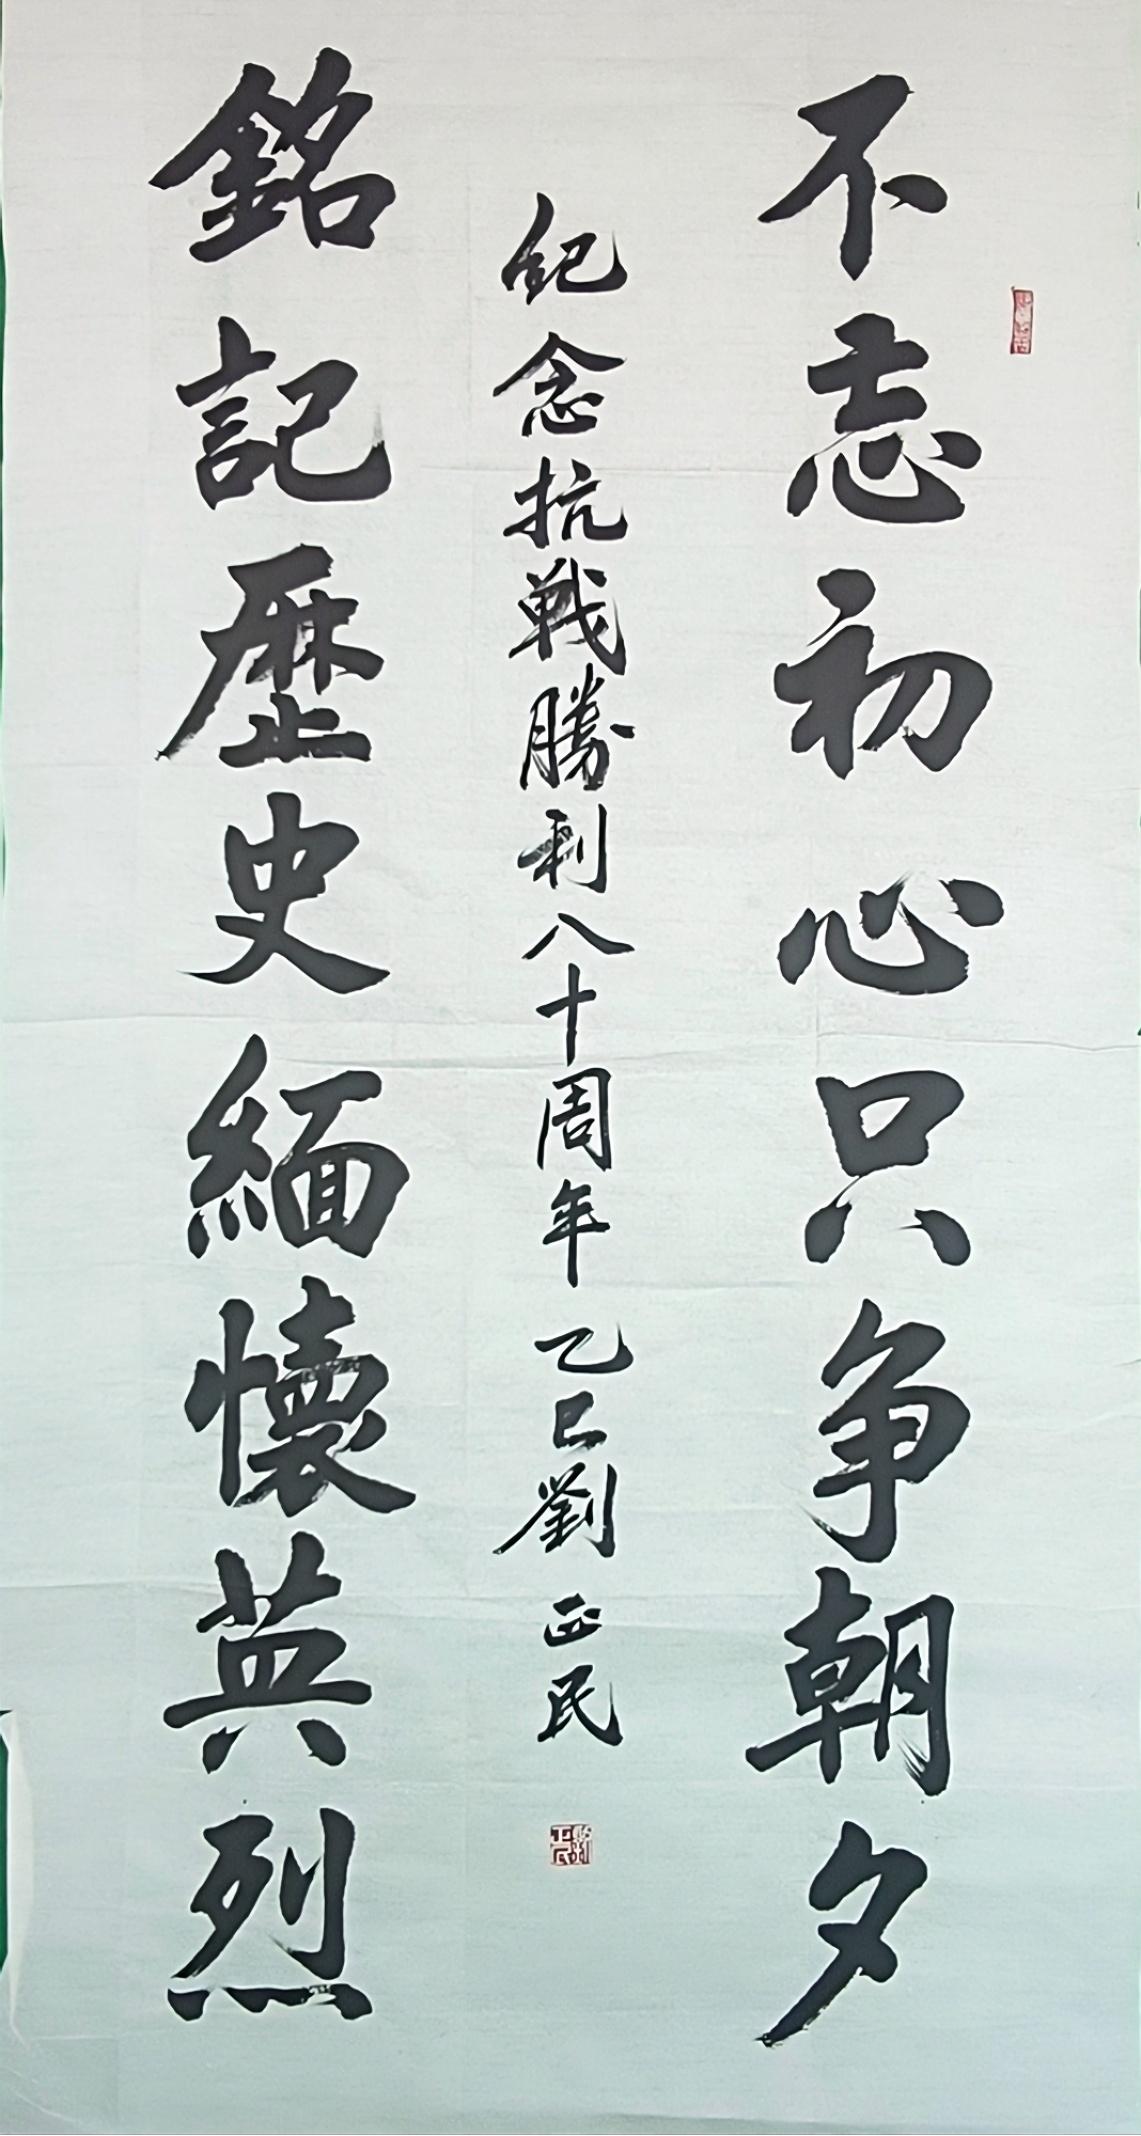 不忘初心只争朝夕
纪念抗戦勝利八十周年 乙巳劉正民
銘記歴史緬懷英烈